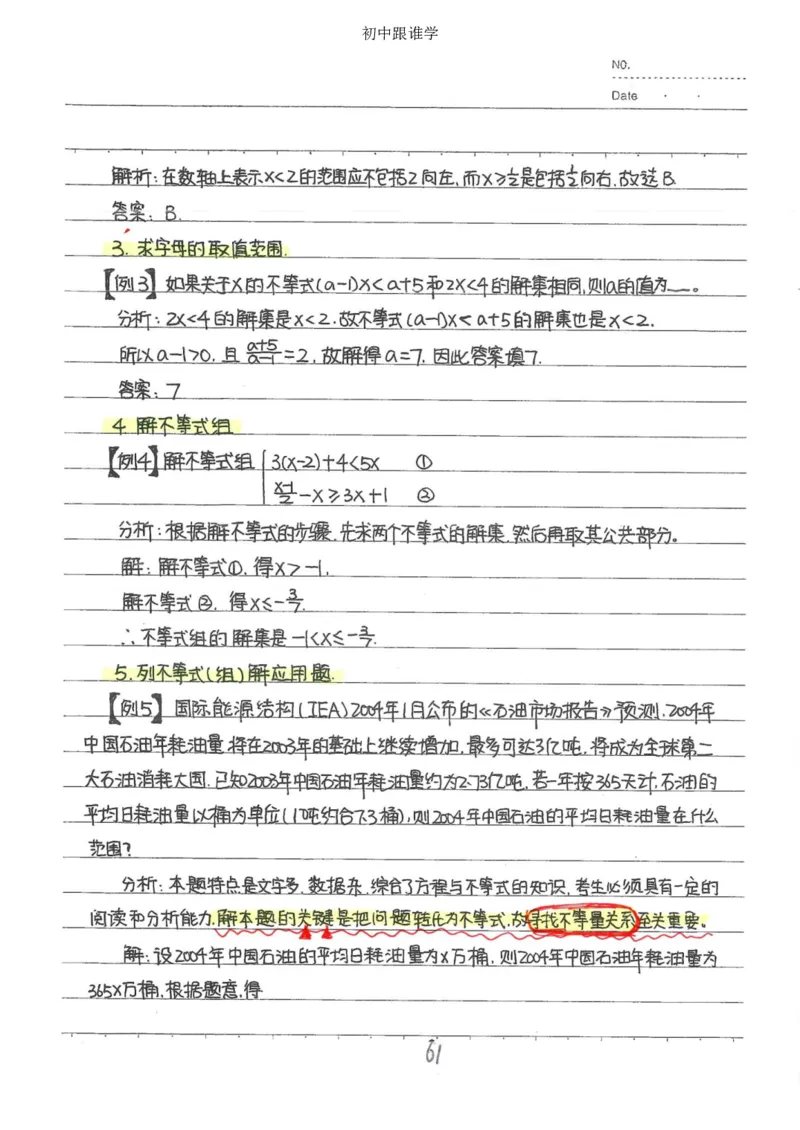 初中跟谁学
NO.
Date · ·
解析:在数轴上表示x<2的范围应不包括2向左,而x≥½是包括½向右,故选B
答案:B.
3. 求字母的取值范围.
【例3】如果关于x的不等式(a-1)x<a+5和2x<4的解集相同,则a的值为__。
分析:2x<4的解集是x<2.故不等式(a-1)x<a+5的解集也是x<2.
所以a-1>0,且 (a+5)/(a-1)=2,故解得a=7.因此答案填7.
答案:7
4 解不等式组
【例4】解不等式组 { 3(x-2)+4<5x ①
(x-1)/2-x≥3x+1 ②
分析:根据解不等式的步骤,先求两个不等式的解集,然后再取其公共部分。
解:解不等式①,得x>-1.
解不等式②,得x≤-3/7.
∴不等式组的解集是-1<x≤-3/7.
5.列不等式(组)解应用题.
【例5】国际能源结构(IEA)2004年1月公布的《石油市场报告》预测,2004年
中国石油年耗油量将在2003年的基础上继续增加,最多可达3亿吨,将成为全球第二
大石油消耗大国.已知2003年中国石油年耗油量约为2.73亿吨,若一年按365天计,石油的
平均日耗油量以桶为单位(1吨约合7.3桶),则2004年中国石油的平均日耗油量在什么
范围?
分析:本题特点是文字多,数据杂,综合了方程与不等式的知识,考生必须具有一定的
阅读和分析能力.解本题的关键是把问题转化为不等式,故寻找不等量关系至关重要。
解:设2004年中国石油的平均日耗油量为x万桶,则2004年中国石油年耗油量为
365x万桶,根据题意,得
61